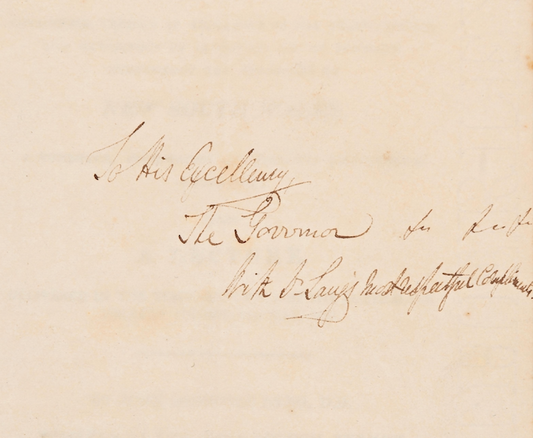 To His Excellency
The Governor
With Dr Lang's most respectful Compliments